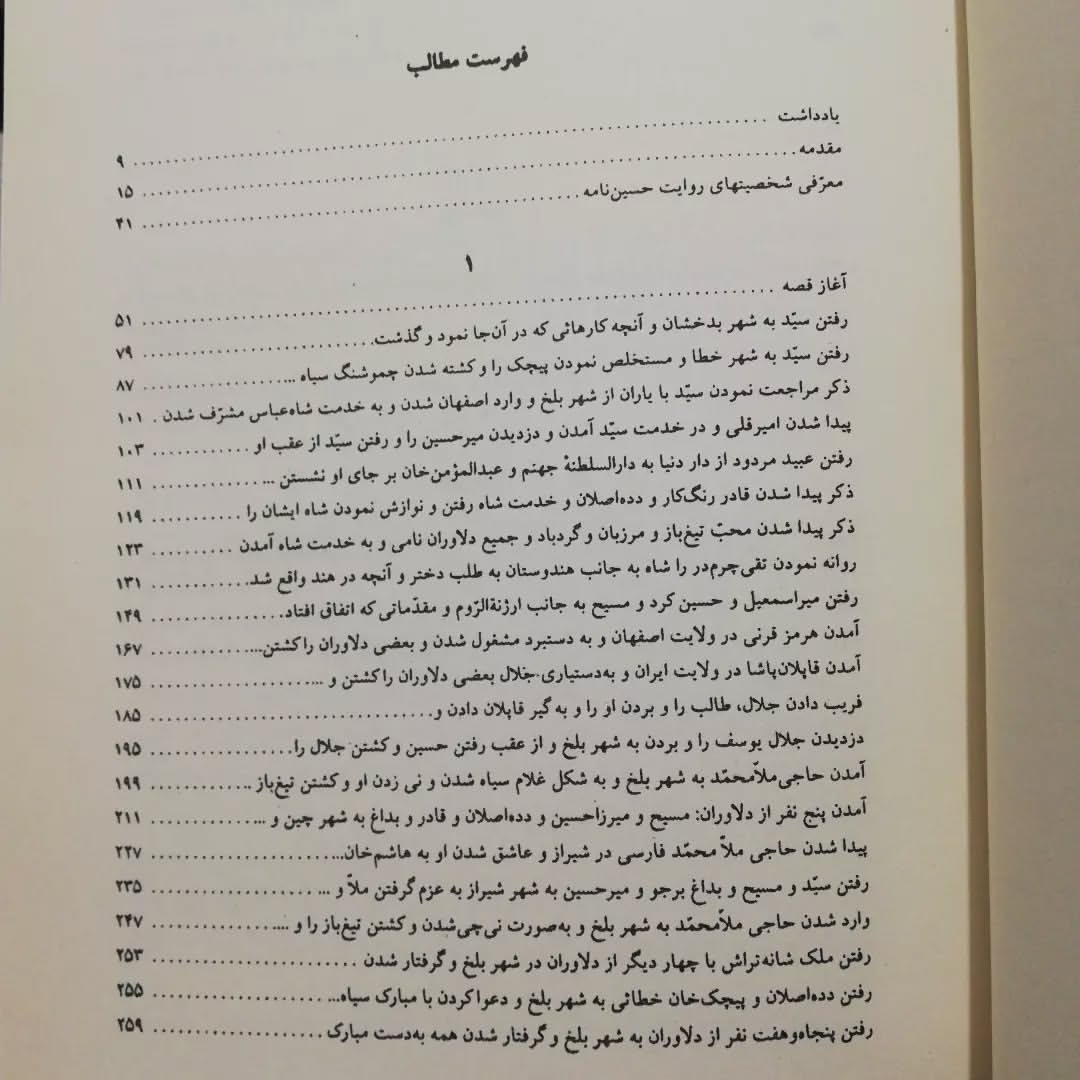 فهرست مطالب
یادداشت ............ ۹
مقدمه ............ ۱۵
معرّفی شخصیتهای روایت حسین‌نامه ............ ۴۱
۱
آغاز قصه ............ ۵۱
رفتن سیّد به شهر بدخشان و آنچه کارهائی که در آن‌جا نمود و گذشت ............ ۷۹
رفتن سیّد به شهر خطا و مستخلص نمودن پیچک را و کشته شدن چموشنگ سیاه ... ............ ۸۷
ذکر مراجعت نمودن سیّد با یاران از شهر بلخ و وارد اصفهان شدن و به خدمت شاه‌عباس مشرّف شدن . ۱۰۱
پیدا شدن امیرقلی و در خدمت سیّد آمدن و دزدیدن میرحسین را و رفتن سیّد از عقب او ............ ۱۰۳
رفتن عبید مردود از دار دنیا به دارالسلطنهٔ جهنم و عبدالمؤمن‌خان بر جای او نشستن ... ............ ۱۱۱
ذکر پیدا شدن قادر رنگ‌کار و دده‌اصلان و خدمت شاه رفتن و نوازش نمودن شاه ایشان را ............ ۱۱۹
ذکر پیدا شدن محبّ تیغ‌باز و مرزبان و گردباد و جمیع دلاوران نامی و به خدمت شاه آمدن ............ ۱۲۳
روانه نمودن تقی‌چرم‌در را شاه به جانب هندوستان به طلب دختر و آنچه در هند واقع شد ............ ۱۳۱
رفتن میراسمعیل و حسین کرد و مسیح به جانب ارزنةالرّوم و مقدّماتی که اتفاق افتاد ............ ۱۴۹
آمدن هرمز قرنی در ولایت اصفهان و به دستبرد مشغول شدن و بعضی دلاوران را کشتن... ............ ۱۶۷
آمدن قاپلان‌پاشا در ولایت ایران و به‌دستیاری جلال بعضی دلاوران را کشتن و ... ............ ۱۷۵
فریب دادن جلال، طالب را و بردن او را و به گیر قاپلان دادن و ............ ۱۸۵
دزدیدن جلال یوسف را و بردن به شهر بلخ و از عقب رفتن حسین و کشتن جلال را ............ ۱۹۵
آمدن حاجی‌ملاّمحمّد به شهر بلخ و به شکل غلام سیاه شدن و نی زدن او و کشتن تیغ‌باز .. ............ ۱۹۹
آمدن پنج نفر از دلاوران: مسیح و میرزاحسین و دده‌اصلان و قادر و بداغ به شهر چین و ... ............ ۲۱۱
پیدا شدن حاجی ملاّ محمّد فارسی در شیراز و عاشق شدن او به هاشم‌خان... ............ ۲۲۷
رفتن سیّد و مسیح و بداغ برجو و میرحسین به شهر شیراز به عزم گرفتن ملاّ و ... ............ ۲۳۵
وارد شدن حاجی ملاّمحمّد به شهر بلخ و به‌صورت نی‌چی‌شدن و کشتن تیغ‌باز را و .... ............ ۲۴۷
رفتن ملک شانه‌تراش با چهار دیگر از دلاوران در شهر بلخ و گرفتار شدن ............ ۲۵۳
رفتن دده‌اصلان و پیچک‌خان خطائی به شهر بلخ و دعوا کردن با مبارک سیاه... ............ ۲۵۵
رفتن پنجاه‌وهفت نفر از دلاوران به شهر بلخ و گرفتار شدن همه به‌دست مبارک ............ ۲۵۹